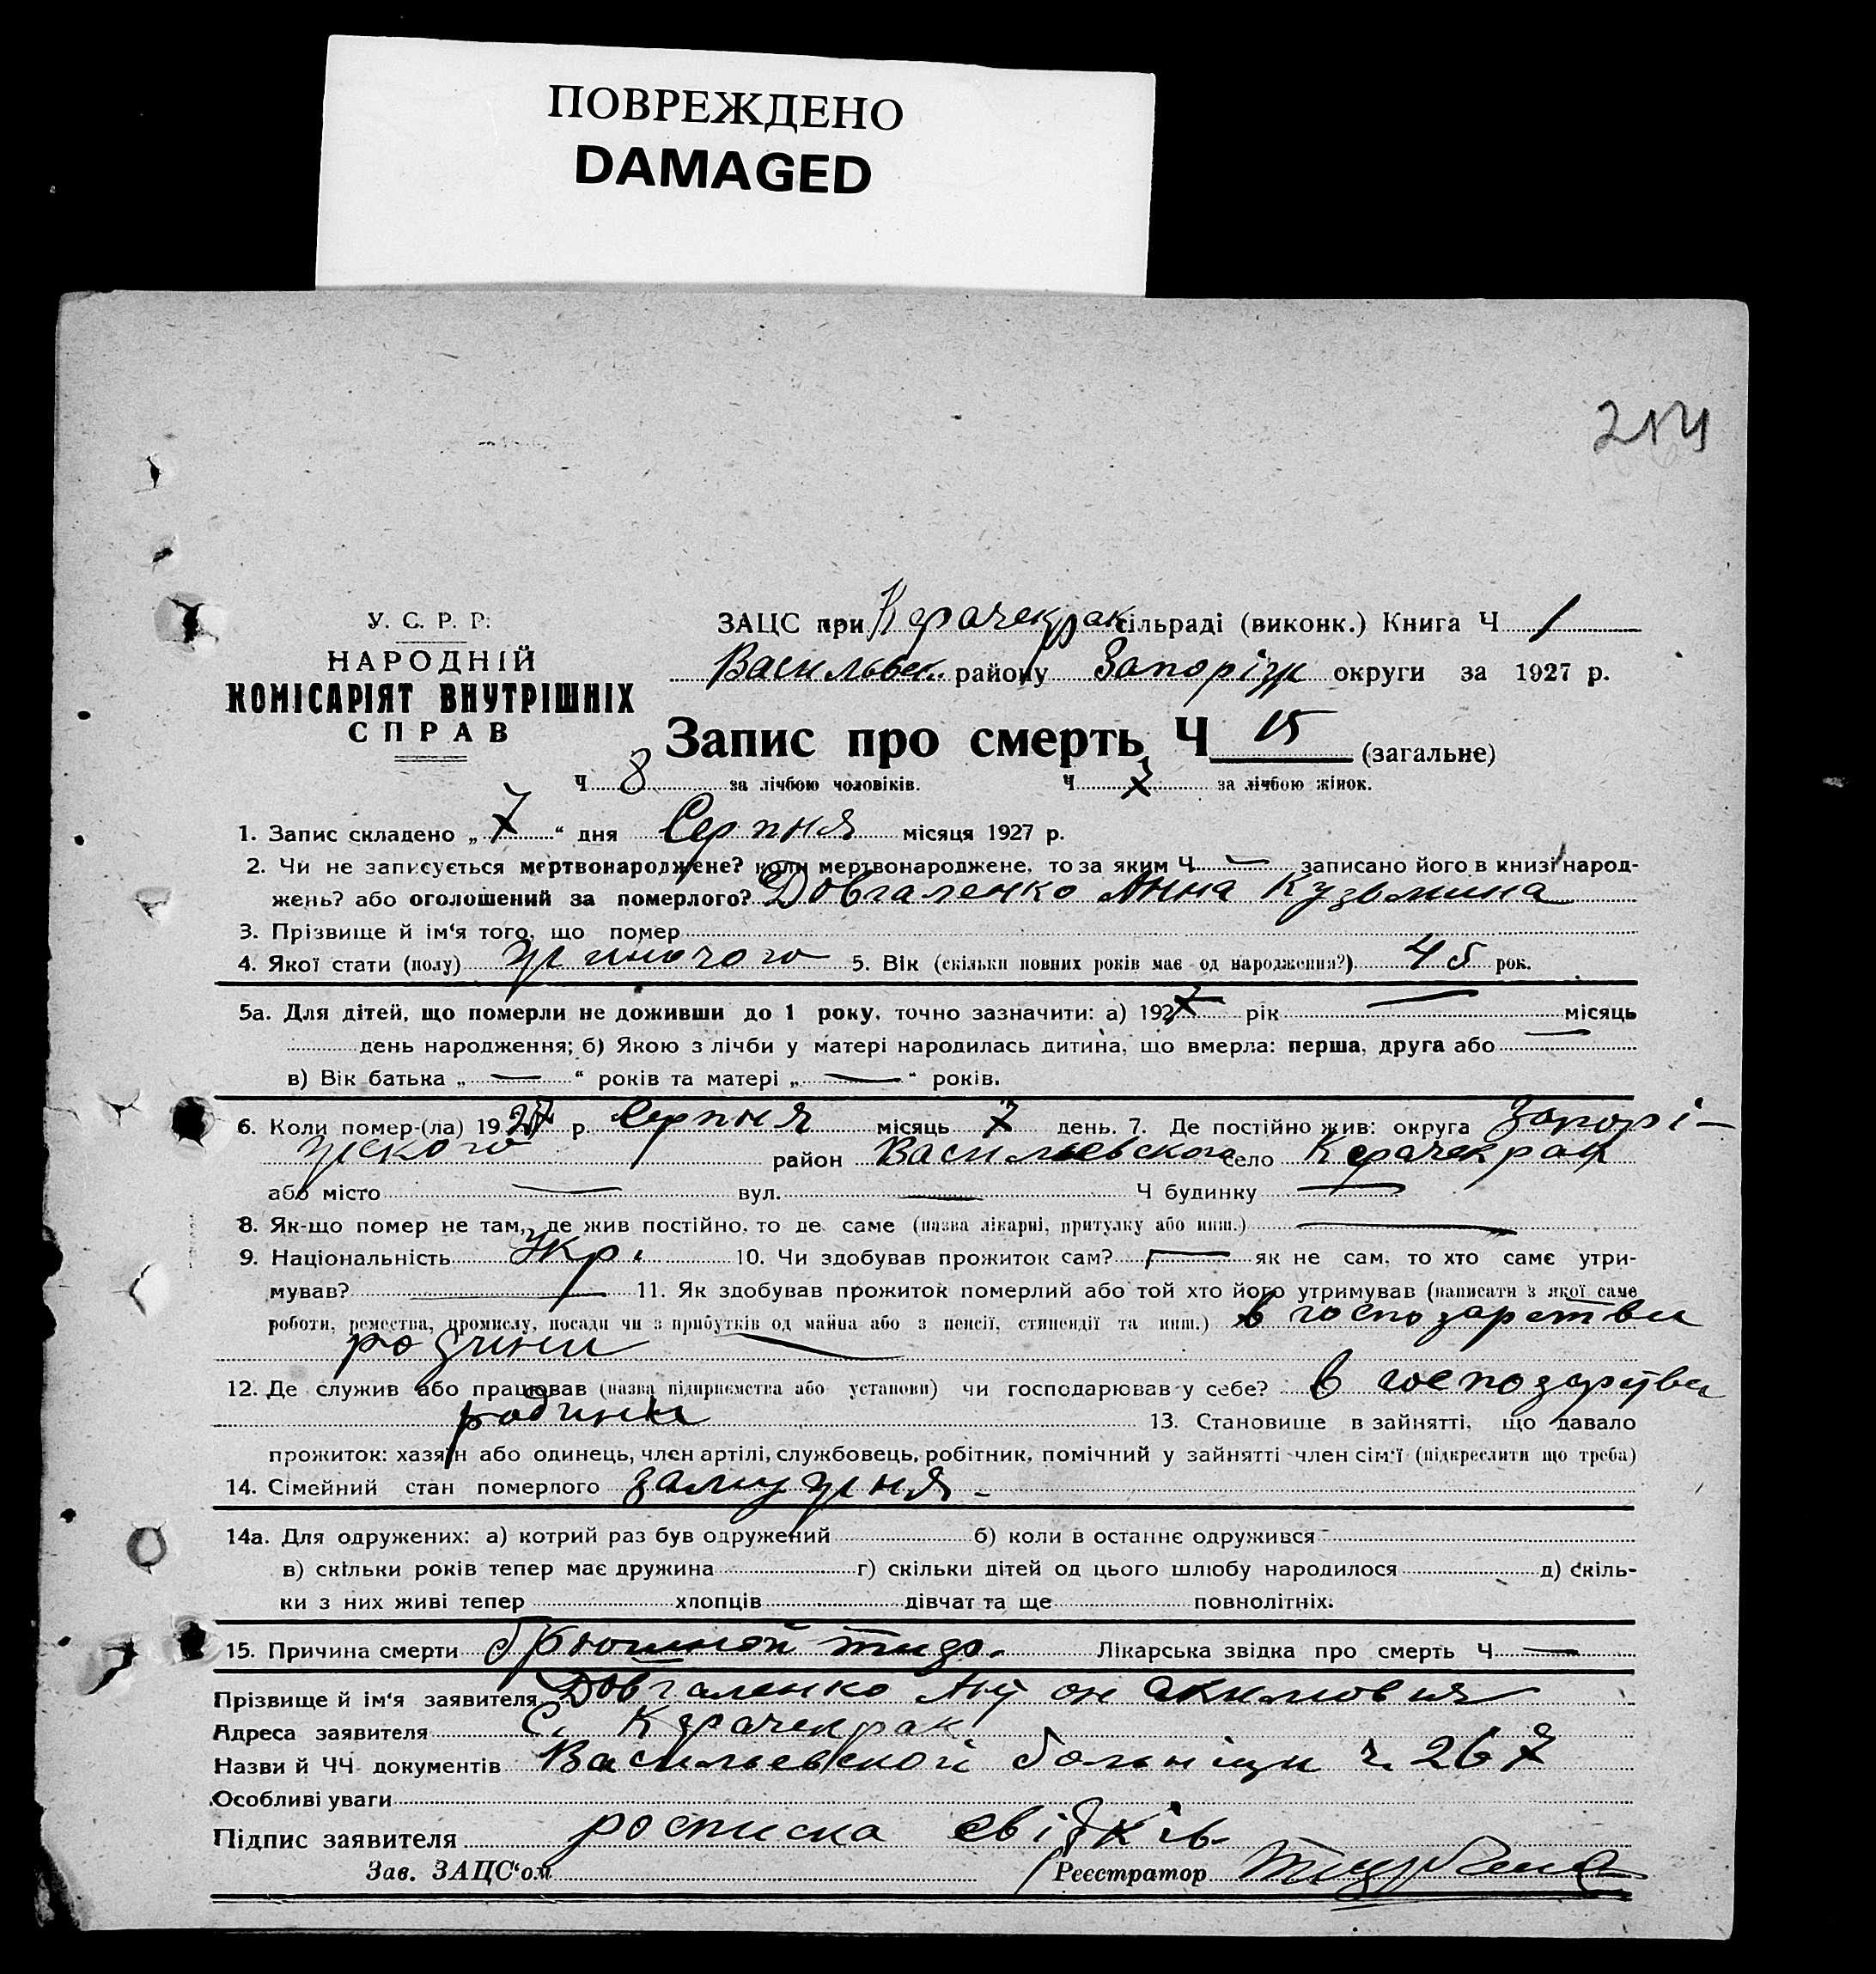 ПОВРЕЖДЕНО
DAMAGED
214
У. С. Р. Р.
НАРОДНІЙ
КОМІСАРІЯТ ВНУТРІШНІХ
СПРАВ
ЗАЦС при Карачекрак сільраді (виконк.) Книга Ч 1
Васильвск. району Запоріж округи за 1927 р.
Запис про смерть Ч 15 (загальне)
Ч 8 за лічбою чоловіків. Ч 7 за лічбою жінок.
1. Запис складено „ 7 “ дня Серпня місяця 1927 р.
2. Чи не записується мертвонароджене? коли мертвонароджене, то за яким Ч — записано його в книзі народ-
жень? або оголошений за померлого? Довгаленко Анна Кузьмина
3. Прізвище й ім‘я того, що помер
4. Якої стати (полу) жиночого 5. Вік (скільки повних років має од народження?) 45 рок.
5а. Для дітей, що померли не доживши до 1 року, точно зазначити: а) 1927 рік — місяць
день народження; б) Якою з лічби у матері народилась дитина, що вмерла: перша, друга або —
в) Вік батька „ — “ років та матері „ — “ років.
6. Коли помер-(ла) 1927 р. Серпня місяць 7 день. 7. Де постійно жив: округа Запорі-
жского район Васильевского село Карачекрак
або місто — вул. — Ч будинку —
8. Як-що помер не там, де жив постійно, то де саме (назва лікарні, притулку або инш.) —
9. Національність Укр. 10. Чи здобував прожиток сам? — як не сам, то хто саме утри-
мував? — 11. Як здобував прожиток померлий або той хто його утримував (написати з якої саме
роботи, ремества, промислу, посади чи з прибутків од майна або з пенсії, стипендії та инш.) в господарстви
родини —
12. Де служив або працював (назва підприємства або установи) чи господарював у себе? в господарстви
родини 13. Становище в зайнятті, що давало
прожиток: хазяїн або одинець, член артілі, службовець, робітник, помічний у зайнятті член сім‘ї (підкреслити що треба)
14. Сімейний стан померлого замужня -
14а. Для одружених: а) котрий раз був одружений б) коли в останнє одружився
в) скільки років тепер має дружина г) скільки дітей од цього шлюбу народилося д) скіль-
ки з них живі тепер хлопців дівчат та ще повнолітніх.
15. Причина смерти брюшной тиф. Лікарська звідка про смерть Ч —
Прізвище й ім‘я заявителя Довгаленко Антон Акимовия
Адреса заявителя С. Карачекрак
Назви й ЧЧ документів Васильевской больніци ч. 267
Особливі уваги
Підпис заявителя росписка свідків
Зав. ЗАЦС‘ом Реєстратор